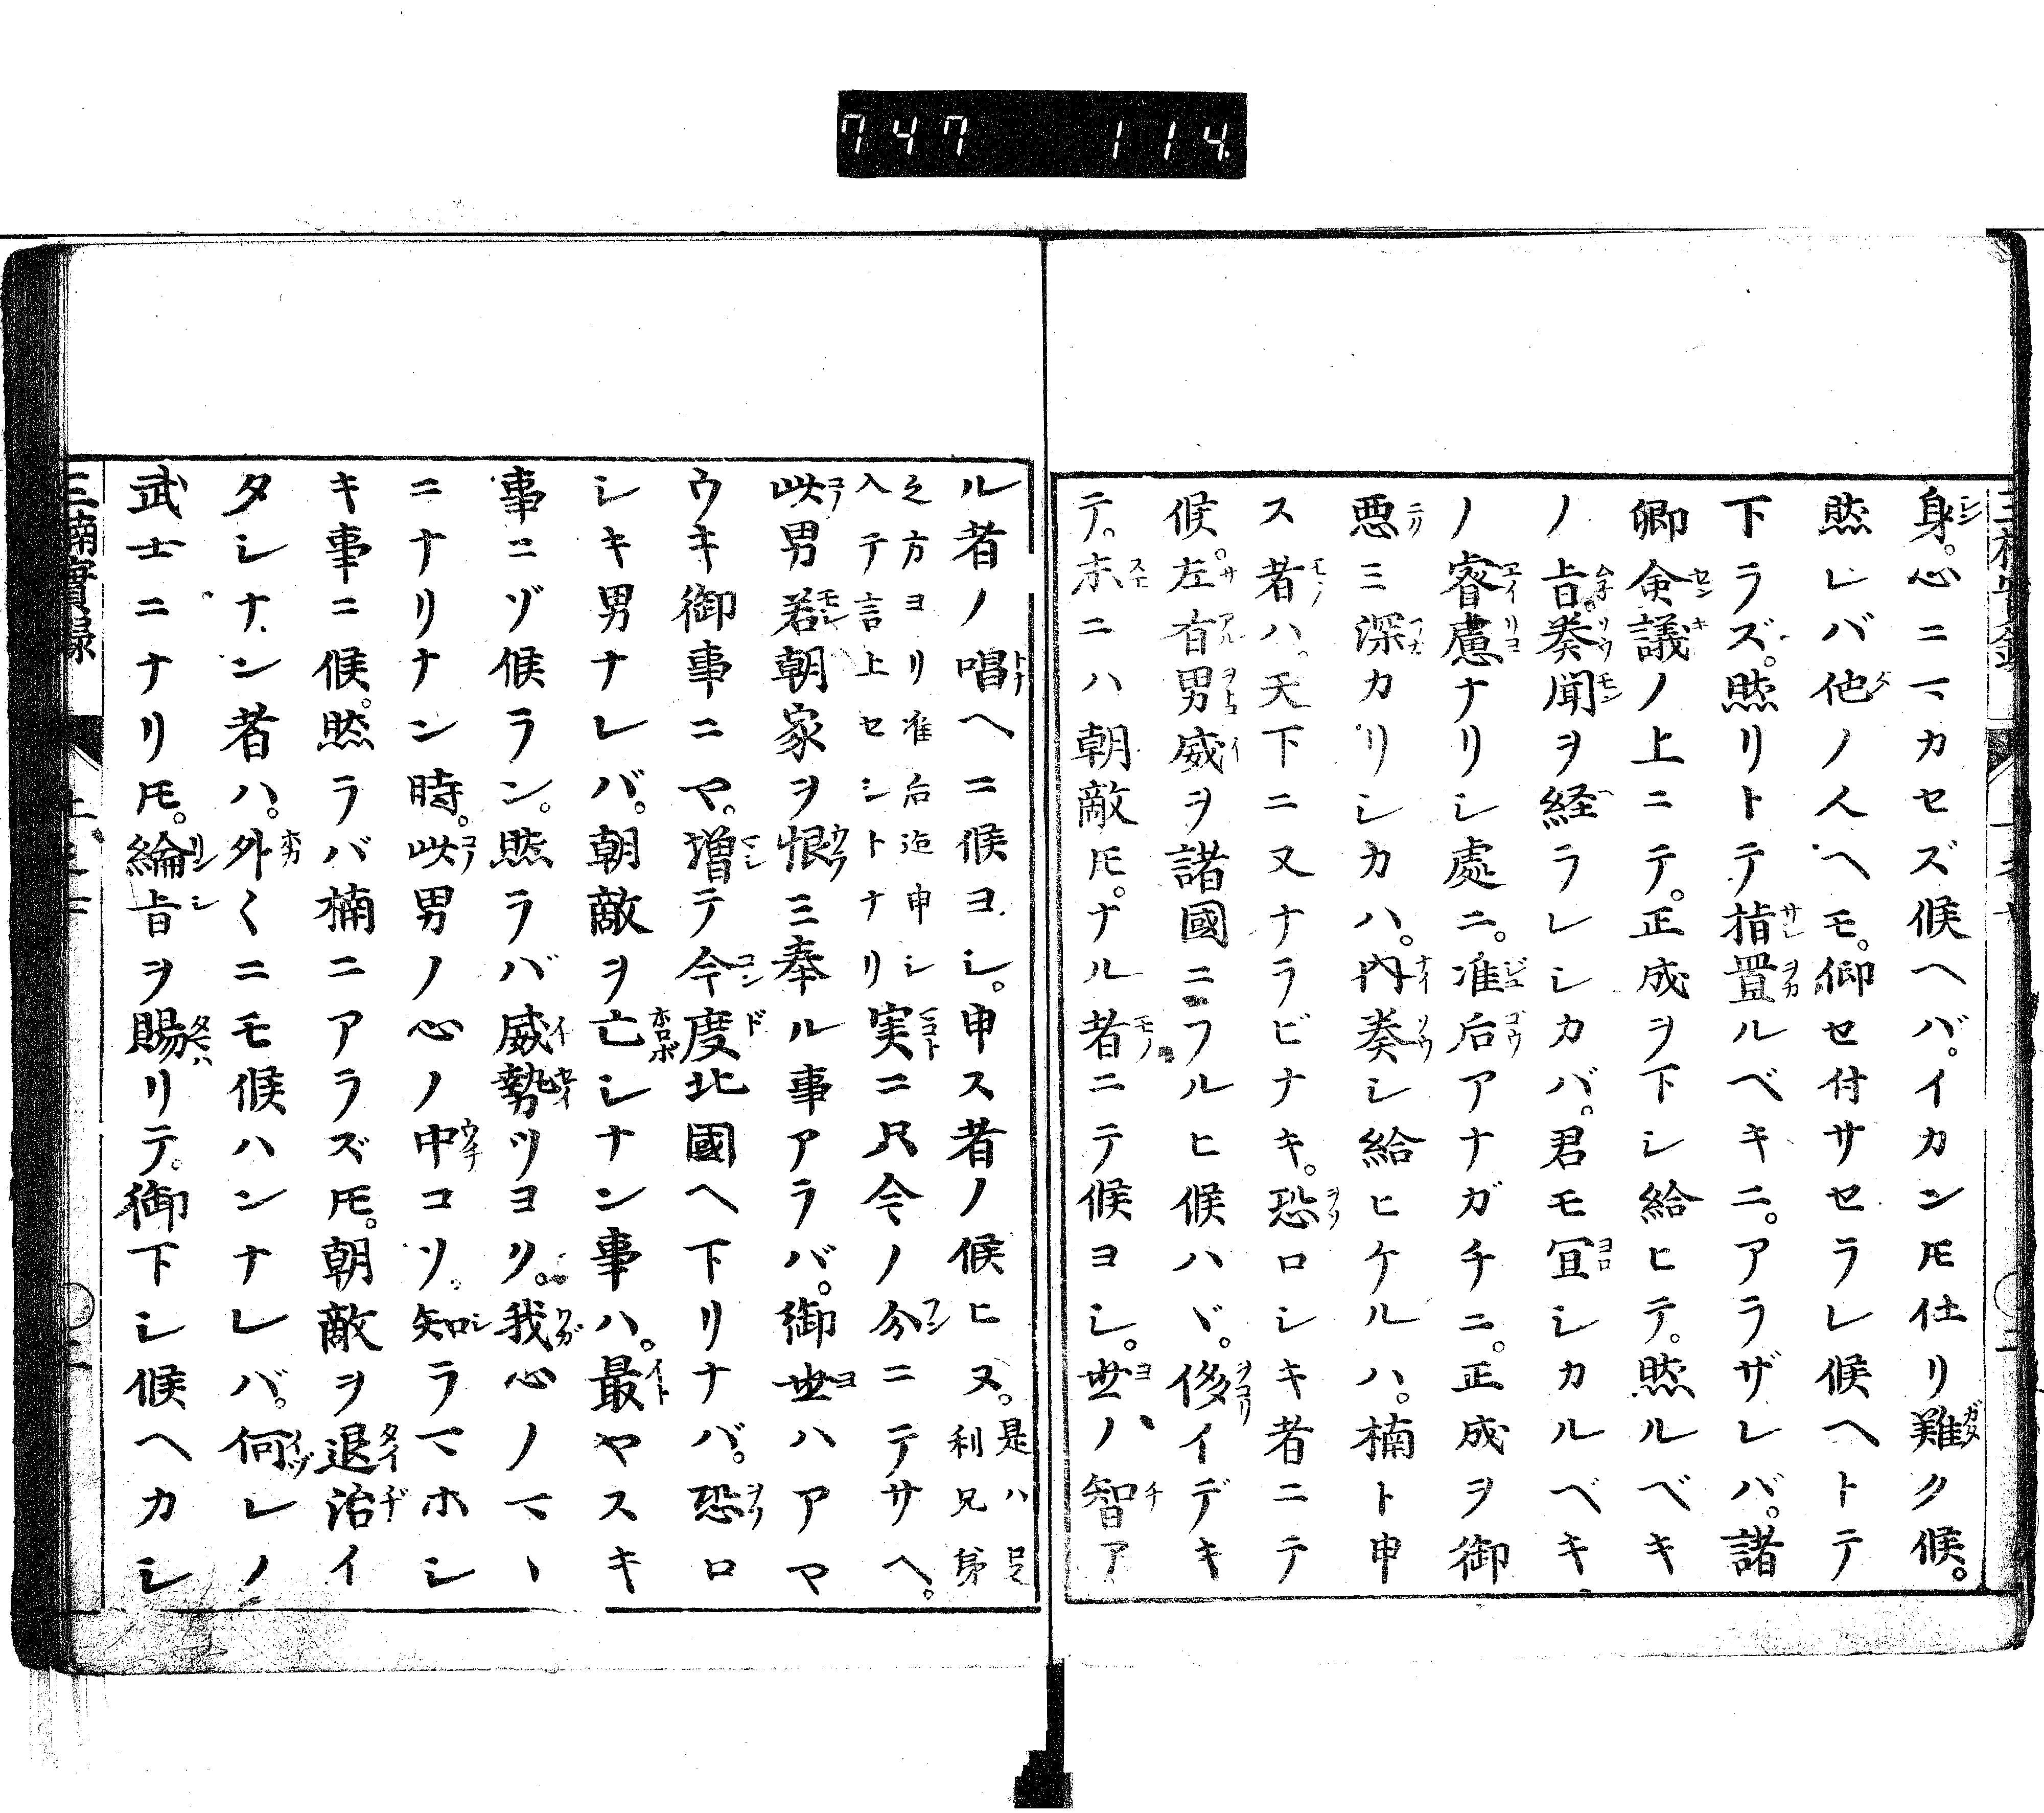 747 114
身。心ニマカセズ候ヘバ。イカントモ仕リ難ク候。
然レバ他ノ人ヘモ。仰セ付サセラレ候ヘトテ
下ラズ。然リトテ指置ルベキニ。アラザレバ。諸
卿僉議ノ上ニテ。正成ヲ下シ給ヒテ。然ルベキ
ノ旨。奏聞ヲ経ラレシカバ。君モ宜シカルベキ
ノ睿慮ナリシ處ニ。准后アナガチニ。正成ヲ御
悪ミ深カリシカハ。内奏シ給ヒケルハ。楠ト申
ス者ハ。天下ニ又ナラビナキ。恐ロシキ者ニテ
候。左有男威ヲ諸國ニフルヒ候ハヾ。侈イデキ
テ。末ニハ朝敵トモ。ナル者ニテ候ヨシ。世ノ智ア
ル者ノ唱ヘニ候ヨシ。申ス者ノ候ヒヌ。是ハ足利兄弟
之方ヨリ准后迄申シ入テ言上セシトナリ実ニ只今ノ分ニテサヘ。
此男若朝家ヲ恨ミ奉ル事アラバ。御世ハアマ
ウキ御事ニヤ。増テ今度北國ヘ下リナバ。恐ロ
シキ男ナレバ。朝敵ヲ亡シナン事ハ。最ヤスキ
事ニゾ候ラン。然ラバ威勢ツヨリ。我心ノマヽ
ニナリナン時。此男ノ心ノ中コソ。知ラマホシ
キ事ニ候。然ラバ楠ニアラズトモ。朝敵ヲ退治イ
タシナン者ハ。外〱ニモ候ハンナレバ。何レノ
武士ニナリトモ。綸旨ヲ賜リテ。御下シ候ヘカシ
三楠實録